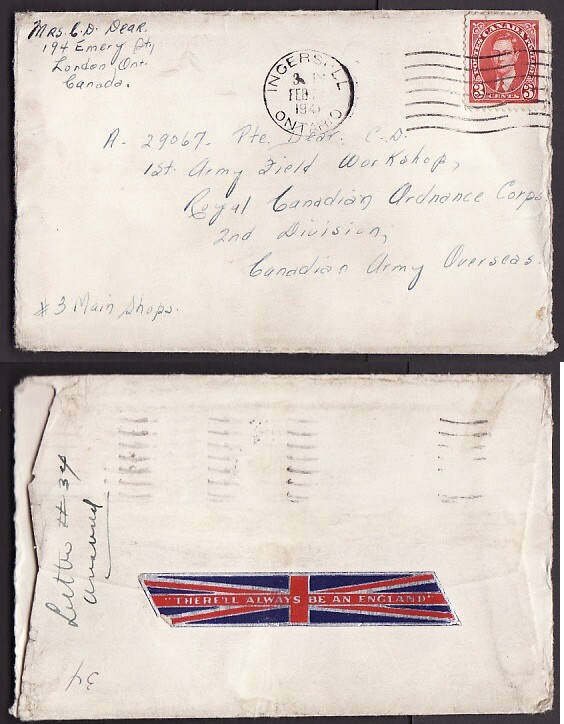 Mrs. C. D. Dear.
194 Emery St,
London Ont.
Canada.
INGERSOLL
FEB
194
ONTARIO
POSTES CANADA POSTAGE
3 CENTS 3
A-29067. Pte. Dear. C. D.
1st. Army Field Workshop,
Royal Canadian Ordnance Corps
2nd Division,
Canadian Army Overseas.
#3 Main Shops.
Letter # 34
Answered
"THERE'LL ALWAYS BE AN ENGLAND"
34